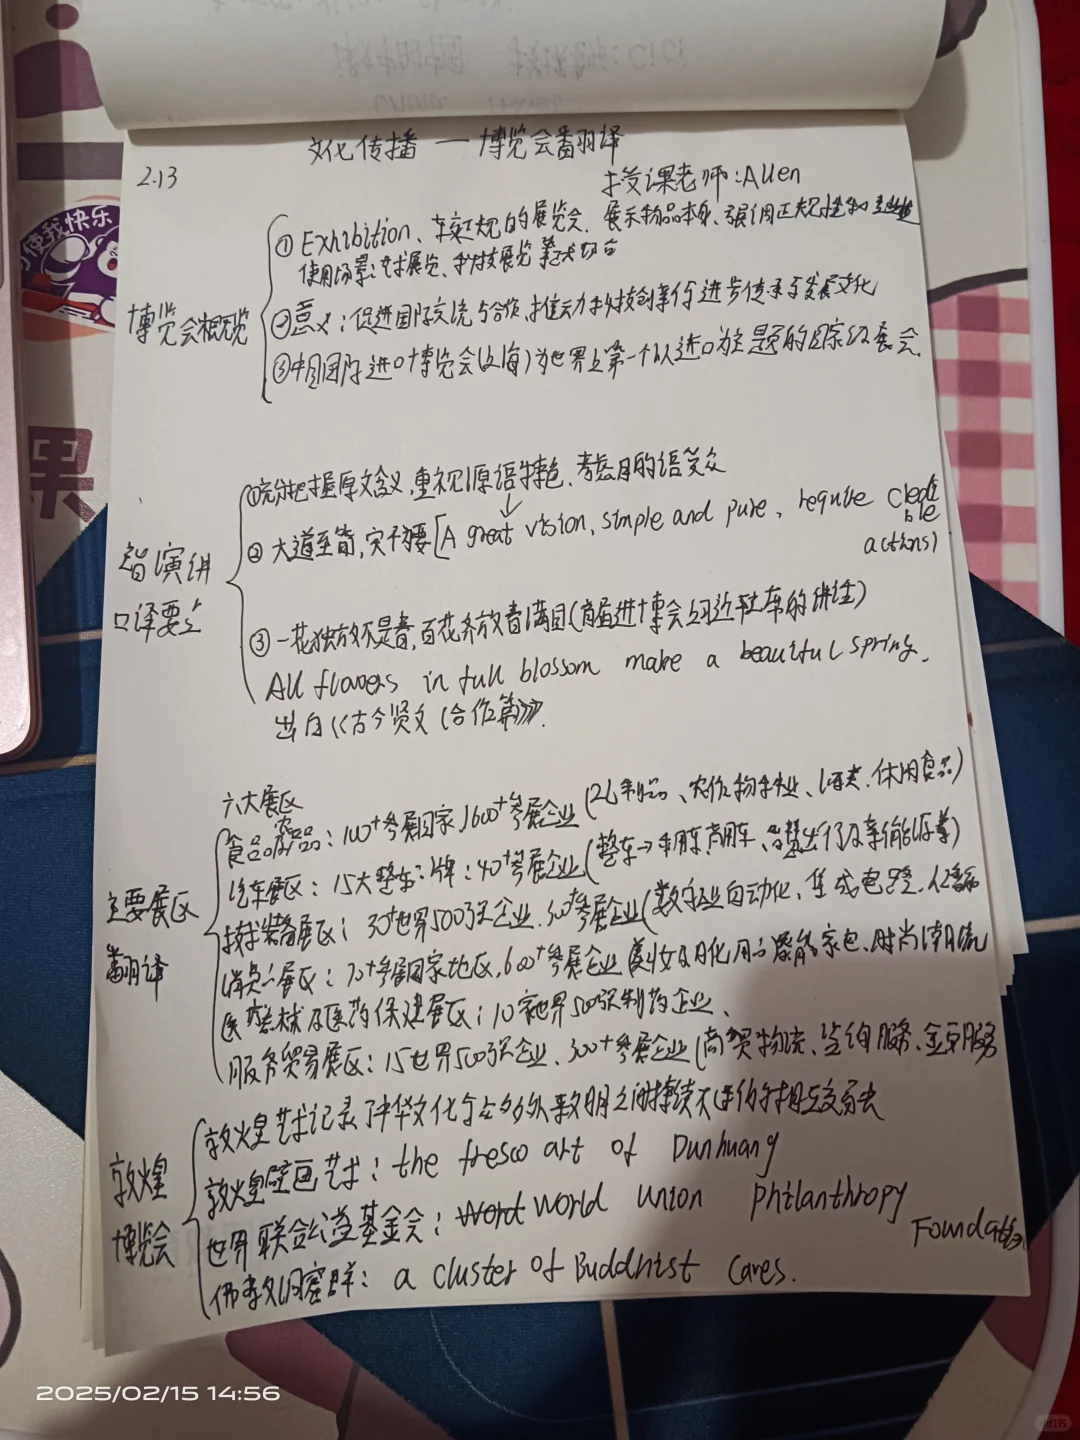 文化传播 — 博览会翻译
2.13
授课老师:Allen
博览会概览
① Exhibition、较正规的展览会. 展示物品本身、强调正规性和专业性
使用场景:艺术展览、科技展览等大场合
②意义:促进国际交流与合作,推动科技创新与进步传承与发展文化
③中国国际进口博览会(上海)为世界上第一个以进口为主题的国家级展会.
演讲
口译要点
①充分把握原文含义,重视源语特色、考虑目的语受众
② 大道至简,实干为要[A great vision, simple and pure, require Credi
ble
actions)
③ 一花独放不是春,百花齐放春满园(首届进博会上习近平主席的讲话)
All flowers in full blossom make a beautiful spring.
出自《古今贤文(合作篇)》.
六大展区
主要展区
翻译
食品农产品:100+参展国家,1600+参展企业(乳制品、农作物、休闲食品)
汽车展区:15大整车品牌:40+参展企业(整车→乘用车商用车、出行及新能源等)
技术装备展区:30+世界500强企业.参展企业(数字工业自动化、集成电路、
消费品展区:70+参展国家地区,600+参展企业 美妆及日化用品 家电、时尚潮流
医疗器械及医药保健展区:10家世界500强制药企业、
服务贸易展区:15世界500强企业、300+参展企业(商贸物流、咨询服务、金融服务
敦煌
博览会
敦煌艺术记录了中华文化与众多外来文明之间持续不断的相互交流
敦煌壁画艺术:the fresco art of Dunhuang
世界联合公益基金会:Word World Union Philanthropy
Foundation
佛教洞窟群:a cluster of Buddhist Caves.
使我快乐
课
2025/02/15 14:56
小红书